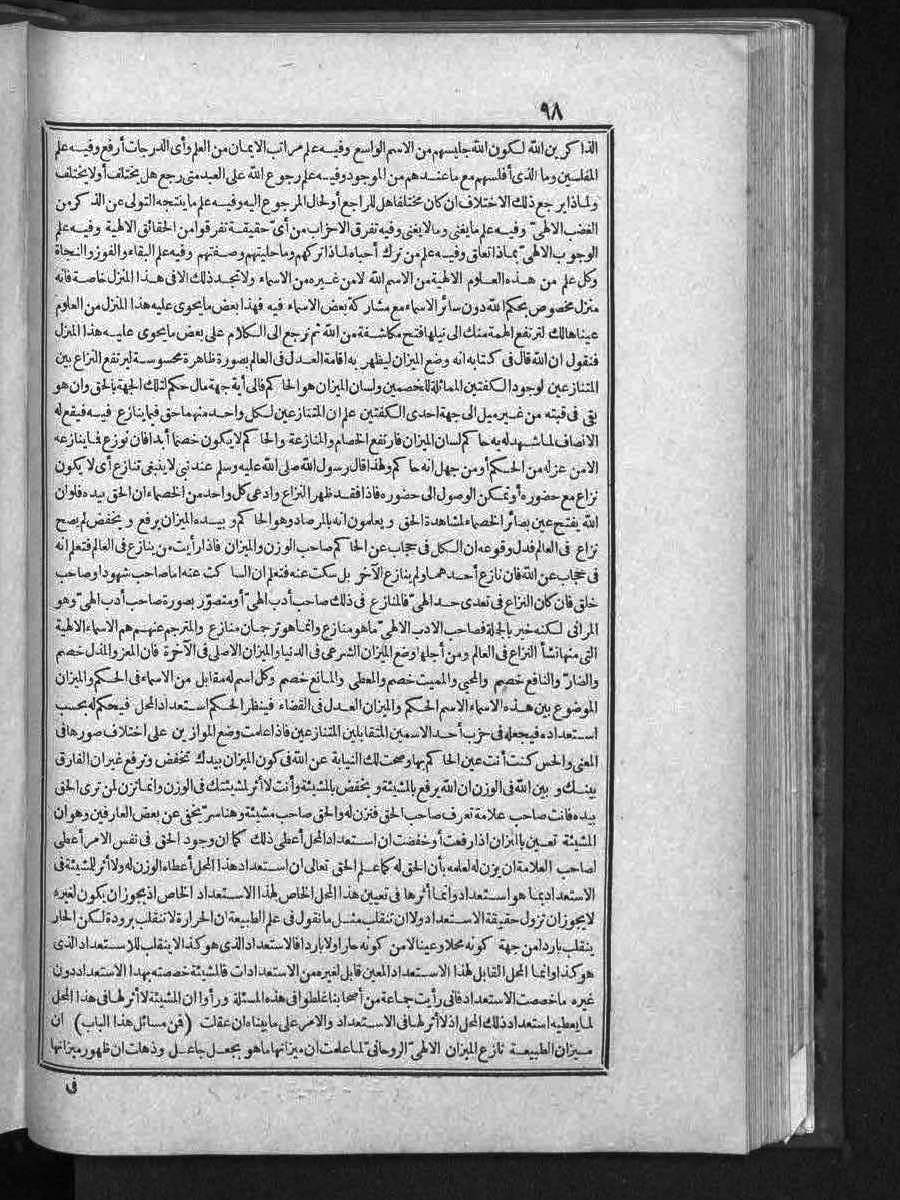 ٩٨
الذاكرين الله لكون الله جليسهم من الاسم الواسع وفيه علم مراتب الايمان من العلم وأى الدرجات أرفع وفيه علم
المفلسين وما الذى أفلسهم مع ما عندهم من الموجود وفيه علم رجوع الله على العبد متى رجع هل يختلف أولا يختلف
ولماذا يرجع ذلك الاختلاف ان كان مختلفا هل للراجع أو لحال المرجوع اليه وفيه علم ما ينتجه التولى عن الذكر من
الغضب الالهىّ وفيه علم ما يغنى وما لا يغنى وفيه تفرق الاحزاب من أىّ حقيقة تفرقوا من الحقائق الالهية وفيه علم
الوجوب الالهىّ بماذا تعلق وفيه علم من ترك أحباه لماذا تركهم وما حليتهم وصفتهم وفيه علم البقاء والفوز والنجاة
وكل علم من هذه العلوم الالهية من الاسم الله لا من غيره من الاسماء ولا تجد ذلك الا فى هذا المنزل خاصة فانه
منزل مخصوص بحكم الله دون سائر الاسماء مع مشاركة بعض الاسماء فيه فهذا بعض ما يحوى عليه هذا المنزل من العلوم
عيناها لك لترتفع الهمة منك الى نيلها فتح مكاشفة من الله ثم نرجع الى الكلام على بعض ما يحوى عليه هذا المنزل
فنقول ان الله قال فى كتابه انه وضع الميزان ليظهر به اقامة العدل فى العالم بصورة ظاهرة محسوسة ليرتفع النزاع بين
المتنازعين لوجود الكفتين المماثلة للخصمين ولسان الميزان هو الحاكم فالى أية جهة مال حكم لتلك الجهة بالحق وان هو
بقى فى قبته من غير ميل الى جهة احدى الكفتين علم ان المتنازعين لكل واحد منهما حق فيما ينازع فيه فيقع له
الانصاف لما شهد له به حاكم لسان الميزان فارتفع الخصام والمنازعة والحاكم لا يكون خصما أبدا فان نوزع فما ينازعه
الا من عزله من الحكم أو من جهل انه حاكم ولهذا قال رسول الله صلى الله عليه وسلم عند نبى لا ينبغى تنازع أى لا يكون
نزاع مع حضوره أو تمكن الوصول الى حضوره فاذا فقد ظهر النزاع وادعى كل واحد من الخصماء ان الحق بيده فلو ان
الله يفتح عين بصائر الخصماء لمشاهدة الحق ويعلمون انه بالمرصاد وهو الحاكم وبيده الميزان يرفع ويخفض لم يصح
نزاع فى العالم فدل وقوعه ان الكل فى حجاب عن الحاكم صاحب الوزن والميزان فاذا رأيت من ينازع فى العالم فتعلم انه
فى حجاب عن الله فان نازع أحدهما ولم ينازع الآخر بل سكت عنه فتعلم ان الساكت عنه اما صاحب شهود أو صاحب
خلق فان كان النزاع فى تعدى حد الهىّ فالمنازع فى ذلك صاحب أدب الهىّ أو متصوّر بصورة صاحب أدب الهىّ وهو
المرائى لكنه خير بالجلة فصاحب الادب الالهىّ ما هو منازع وانما هو ترجمان منازع والمترجم عنهم هم الاسماء الالهية
التى منها نشأ النزاع فى العالم ومن أجلها وضع الميزان الشرعى فى الدنيا والميزان الاصلى فى الآخرة فان المعز والمذل خصم
والضارّ والنافع خصم والمحيى والمميت خصم والمعطى والمانع خصم وكل اسم له مقابل من الاسماء فى الحكم والميزان
الموضوع بين هذه الاسماء الاسم الحكم والميزان العدل فى القضاء فينظر الحكم استعداد المحل فيحكم له بحسب
استعداده فيجعله فى حزب أحد الاسمين المتقابلين المتنازعين فاذا علمت وضع الموازين على اختلاف صورها فى
المعنى والحس كنت أنت عين الحاكم بها وصحت لك النيابة عن الله فى كون الميزان بيدك تخفض وترفع غير ان الفارق
بينك وبين الله فى الوزن ان الله يرفع بالمشيئة ويخفض بالمشيئة وأنت لا أثر لمشيئتك فى الوزن وانما تزن لمن ترى الحق
بيده فانت صاحب علامة تعرف صاحب الحق فتزن له والحق صاحب مشيئة وهنا سرّ يخفى عن بعض العارفين وهو ان
المشيئة تعيين بالميزان اذا رفعت أو خفضت ان استعداد المحل أعطى ذلك كما ان وجود الحق فى نفس الامر أعطى
لصاحب العلامة ان يزن له لعلمه بأن الحق له كما علم الحق تعالى ان استعداد هذا المحل أعطاه الوزن له ولا أثر للمشيئة فى
الاستعداد بما هو استعداد وانما أثرها فى تعيين هذا المحل الخاص لهذا الاستعداد الخاص اذ يجوز ان يكون لغيره
لا يجوز ان تزول حقيقة الاستعداد ولا ان تنقلب مثل ما نقول فى علم الطبيعة ان الحرارة لا تنقلب برودة لكن الحار
ينقلب باردا من جهة كونه محلا وعينا لا من كونه حارا ولا باردا فالاستعداد الذى هو كذا لا ينقلب للاستعداد الذى
هو كذا وانما المحل القابل لهذا الاستعداد المعين قابل لغيره من الاستعدادات فالمشيئة خصصته بهذا الاستعداد دون
غيره ما خصصت الاستعداد فانى رأيت جماعة من أصحابنا غلطوا فى هذه المسئلة ورأوا ان المشيئة لا أثر لها فى هذا المحل
لما يعطيه استعداد ذلك المحل اذ لا أثر لها فى الاستعداد والامر على ما بيناه ان عقلت (فن مسائل هذا الباب) ان
ميزان الطبيعة نازع الميزان الالهىّ الروحانىّ لما علمت ان ميزانها ما هو بجعل جاعل وذهلت ان ظهور ميزانها
فى